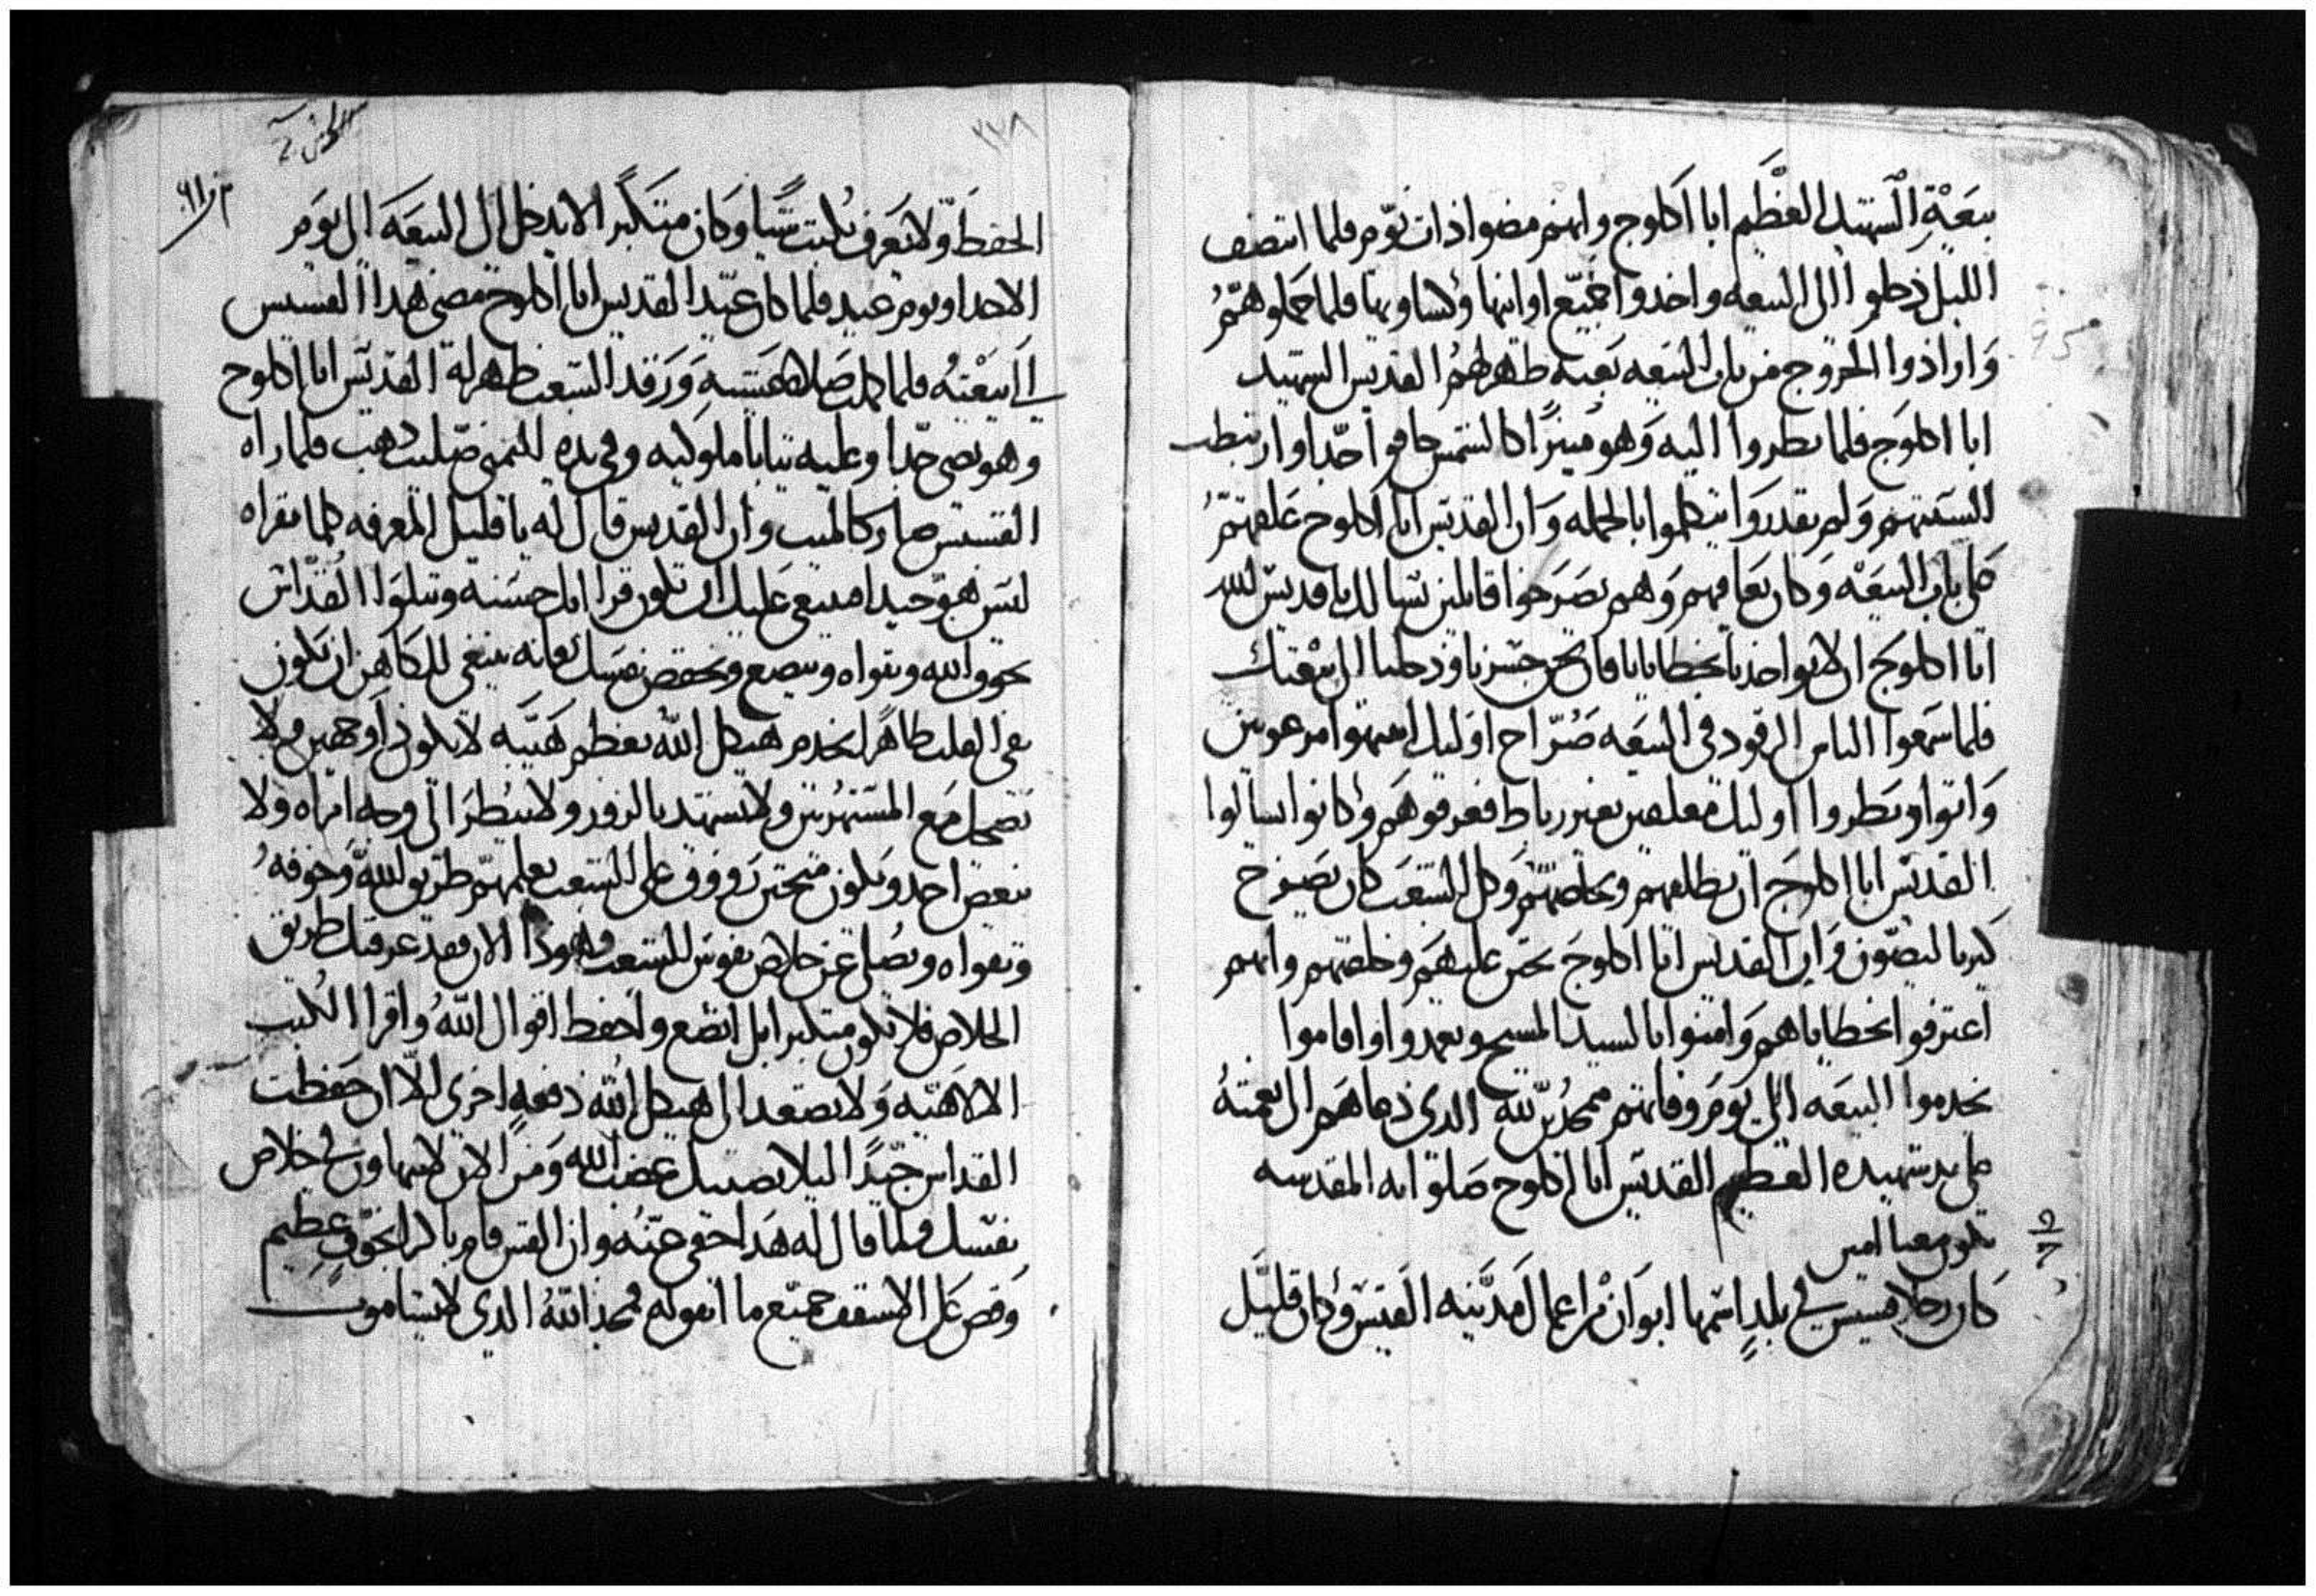 بيعة الشهيد العظيم ابا اكلوج وانهم مضوا ذات يوم فلما انتصف
الليل دخلوا الى البيعه واخدوا جميع اوانيها وكساويها فلما حملوهم
وارادوا الخروج من باب البيعه بغته ظهر لهم القديس الشهيد
ابا اكلوج فلما نظروا اليه وهو منيرًا كالشمس خافوا جدا وارتبطت
السنتهم ولم يقدروا يتكلموا بالجمله وان القديس ابا اكلوج علقهم
على باب البيعه وكان يعاقبهم وهم يصرخوا قايلين نسالك يا قديس الله
ابا اكلوج ان لا تواخدنا بخطايانا فان نحن جسرنا ودخلنا الى بيعتك
فلما سمعوا الناس الرقود في البيعه صراخ اوليك انتبهوا مرعوبين
واتوا ونظروا اوليك معلقين بغير رباط فعرفوهم وكانوا يسالوا
القديس ابا اكلوج ان يطلقهم ويخلصهم وكل الشعب كان يصرخ
كيرياليصون وان القديس ابا اكلوج تحنن عليهم وخلصهم وانهم
اعترفوا بخطاياهم وامنوا بالسيد المسيح وتعمدوا واقاموا
يخدموا البيعه الى يوم وفاتهم ممجدين لله الدي دعاهم الى نعمته
على يد شهيده العظيم القديس ابا اكلوج صلواته المقدسه
تكون معنا امين
كان رجلا قسيس في بلد اسمها ابوان من اعمال مدينه القيس وكان قليل
٣٧٨
الحفظ ولا يعرف يكتب شيا وكان متكبر الا يدخل الى البيعه الى يوم
الاحد او يوم عيد فلما كان عيد القديس ابا اكلوج مضى هدا القسيس
الى بيعته فلما كملت صلاة عشيه ورقد الشعب ظهر له القديس ابا اكلوج
وهو يضي جدا وعليه تيابا ملوكيه وفي يده اليمني صليب دهب فلما راه
القسيس صار كالميت وان القديس قال له يا قليل المعرفه كلما تقراه
ليس هو جيدا ينبغي عليك ان تكون قرااتك حسنه وتتلوا القداس
بخوف الله وتقواه وتتضع وتخفض نفسك لانه ينبغي للكاهن ان يكون
نقي القلب طاهرا يخدم هيكل الله بعظم هيبه لا يكون ذا وجهين ولا
يضحك مع المستهزين ولا يشهد بالزور ولا ينظر الى وجه امراه ولا
يبغض احد ويكون متحنن رووف على الشعب يعلمهم طريق الله وخوفه
وتقواه ويصلي عن خلاص نفوس الشعب وهودا الان فقد عرفتك طريق
الخلاص فلا تكون متكبر ابل اتضع واحفظ اقوال الله واقرا الكتب
الالاهيه ولا تصعد الى هيكل الله دفعه اخرى الا ان حفظت
القداس جيدا ليلا يصيبك غضب الله ومن الان لا تتهاون في خلاص
نفسك فلما قال له هدا خفي عنه وان القس قام باكرا بخوف عظيم
وقص على الاسقف جميع ما اتفق له فمجد الله الدي لا يشا موت